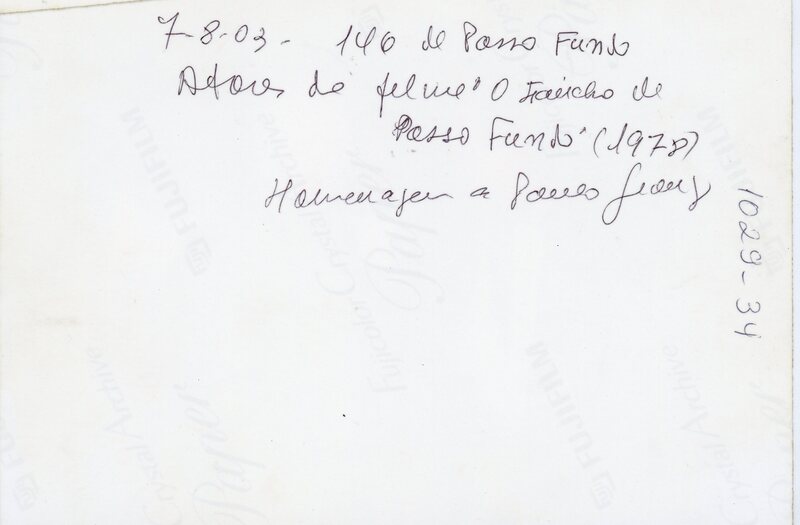 7-8-03 - 146 de Passo Fundo
Atores do filme "O Gaúcho de
Passo Fundo" (1978)
Homenagem a
1029-34
FUJIFILM
Fujicolor Crystal Archive
Paper
FUJIFILM
Crystal Archive
Paper
FUJIFILM
FUJIFILM
Crystal Archive